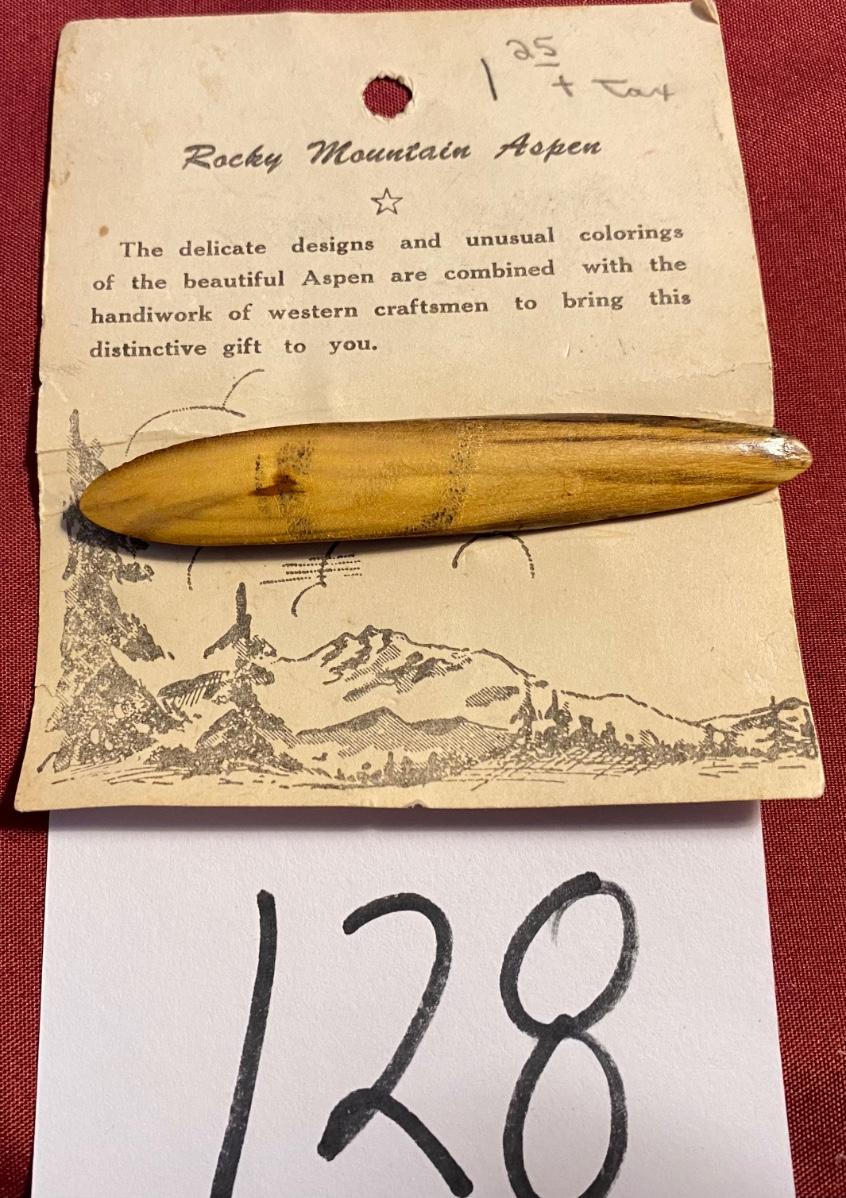 1 25 + tax
Rocky Mountain Aspen
The delicate designs and unusual colorings
of the beautiful Aspen are combined with the
handiwork of western craftsmen to bring this
distinctive gift to you.
128